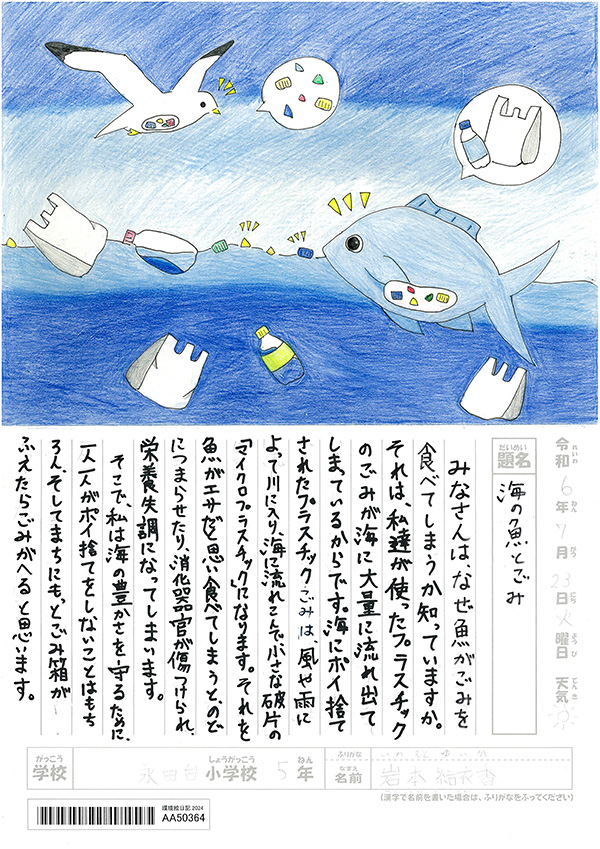 令和6年7月23日火曜日 天気
れいわ ねん がつ にち ようび てんき
だいめい
題名 海の魚とごみ
みなさんは、なぜ魚がごみを
食べてしまうか知っていますか。
それは、私達が使ったプラスチック
のごみが海に大量に流れ出て
しまっているからです。海にポイ捨て
されたプラスチックごみは、風や雨に
よって川に入り、海に流れこんで小さな破片の
「マイクロプラスチック」になります。それを
魚がエサだと思い食べてしまうと、のど
につまらせたり、消化器官が傷つけられ、
栄養失調になってしまいます。
そこで、私は海の豊かさを守るために、
一人一人がポイ捨てをしないことはもち
ろん、そしてまちにもっとごみ箱が
ふえたらごみがへると思います。
がっこう しょうがっこう ねん
学校 永田台 小学校 5 年
ふりがな
なまえ
名前 岩本
(漢字で名前を書いた場合は、ふりがなをふってください)
環境絵日記 2024
AA50364